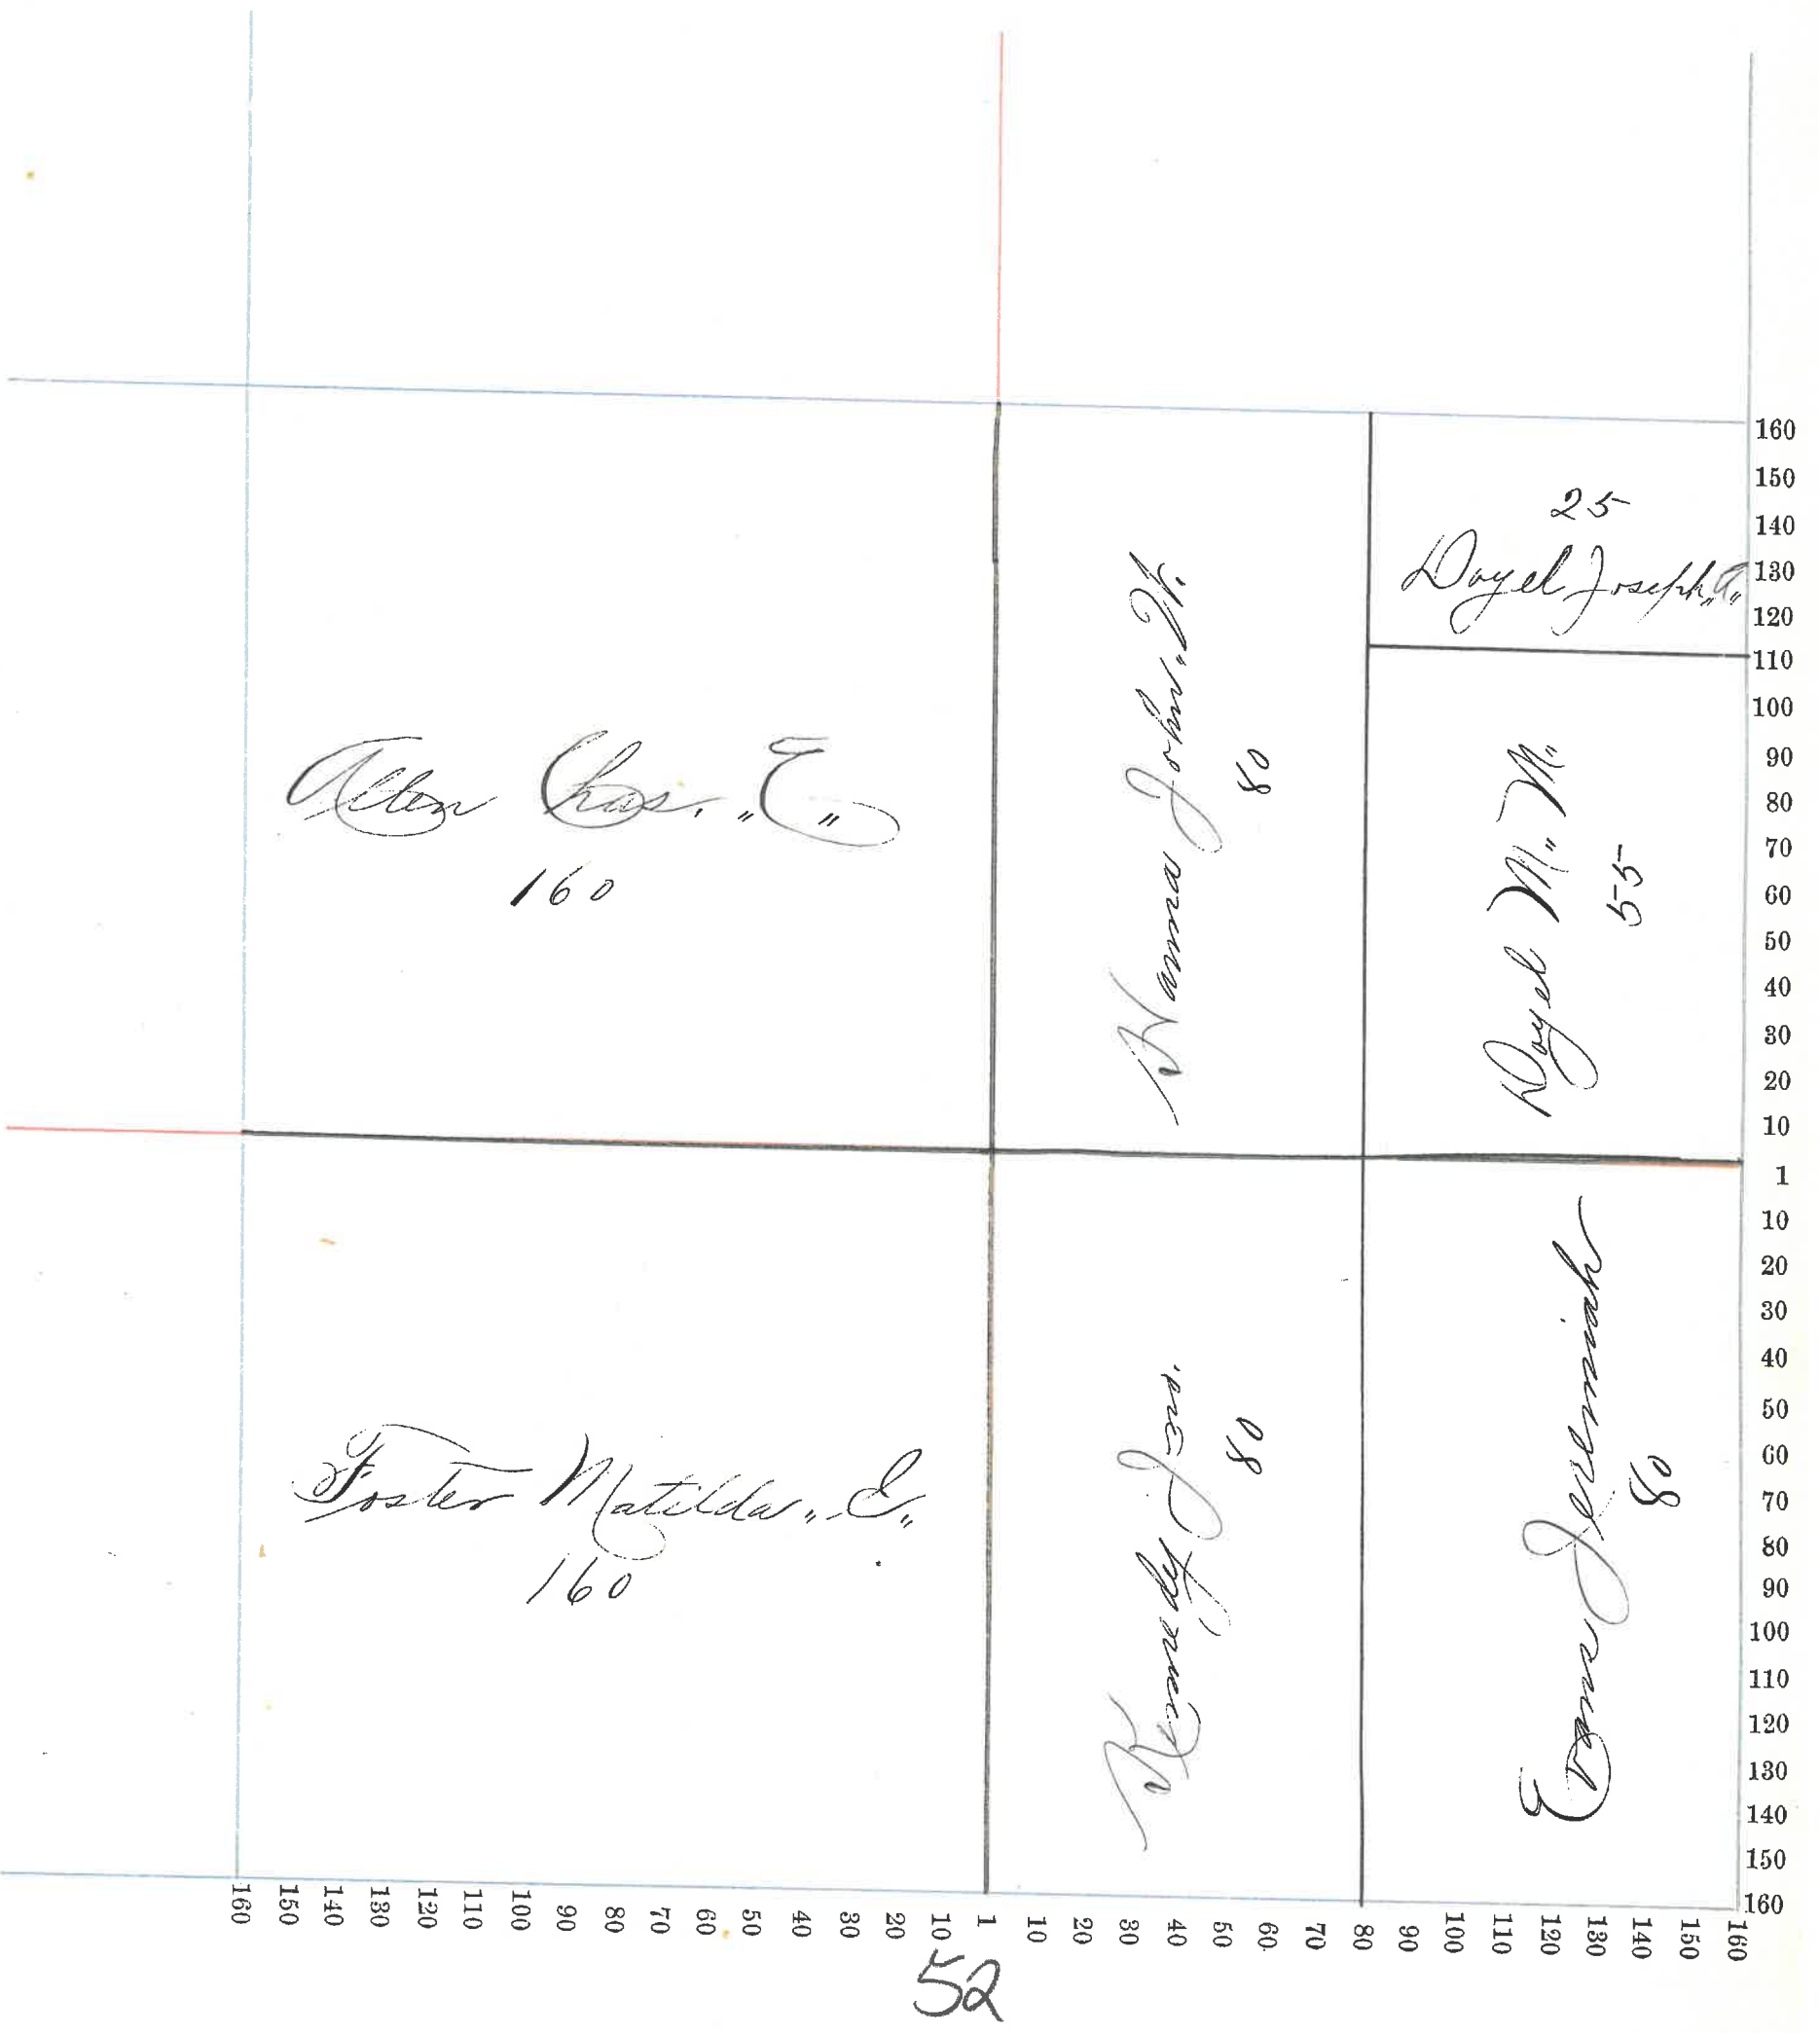 25
Doyel Joseph "A"
Hanna John "W.
80
Allen Chas. "E"
160
Doyel M. "M"
55
Foster Matilda "E"
160
Kennedy Jas.
80
Evans Jeremiah
80
160
150
140
130
120
110
100
90
80
70
60
50
40
30
20
10
1
10
20
30
40
50
60
70
80
90
100
110
120
130
140
150
160
160 150 140 130 120 110 100 90 80 70 60 50 40 30 20 10 1 10 20 30 40 50 60 70 80 90 100 110 120 130 140 150 160
52